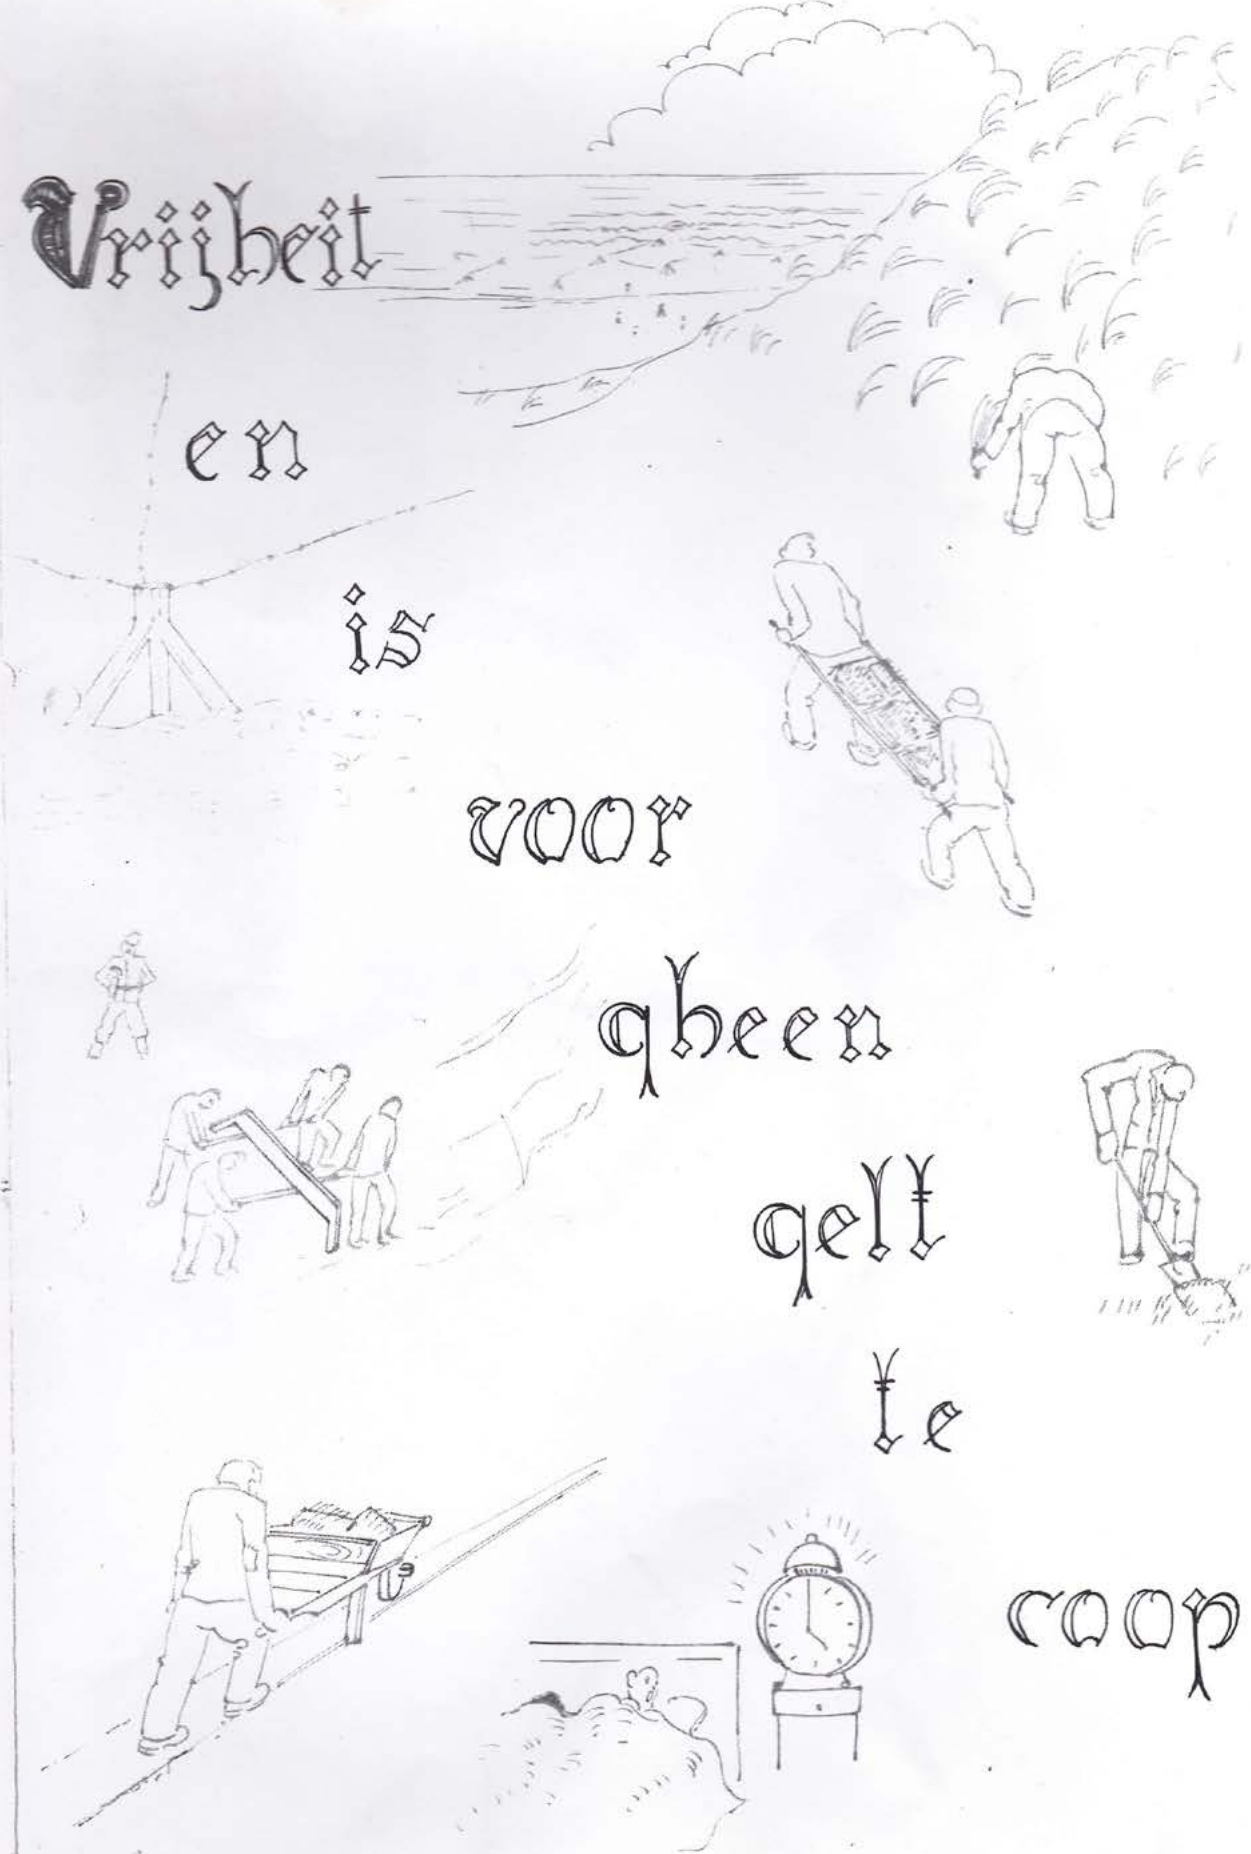 Vrijheit
en
is
voor
gheen
gelt
te
coop